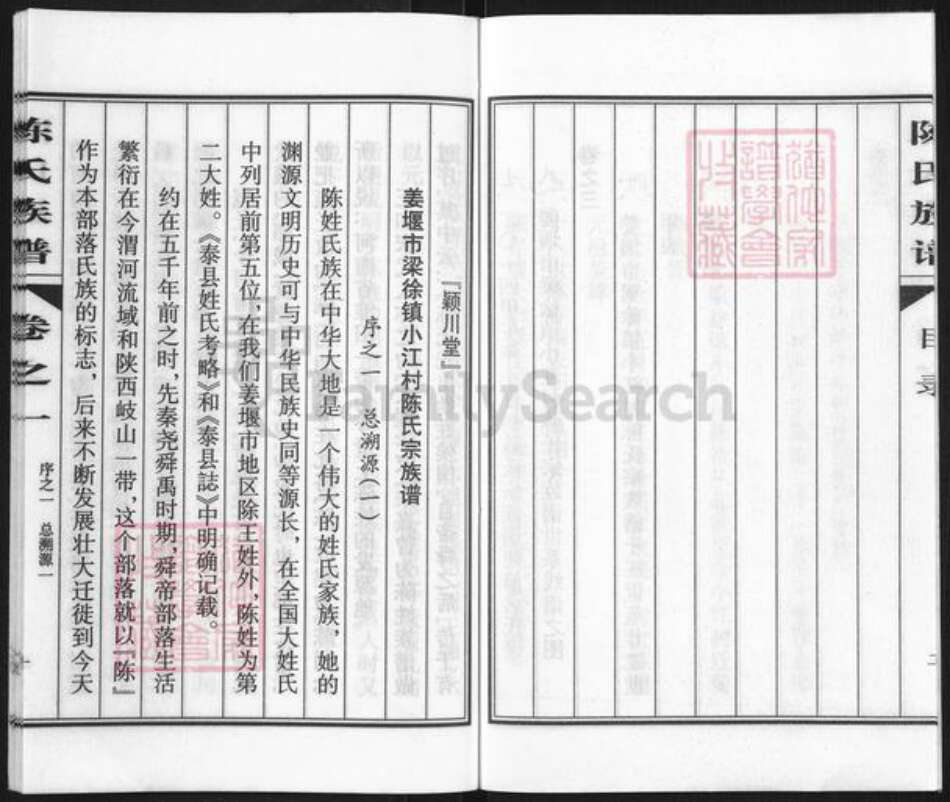 陈氏族谱
目录
二
姜堰市梁徐镇小江村陈氏宗族谱
『颍川堂』
序之一 总溯源(一)
陈姓氏族在中华大地是一个伟大的姓氏家族，她的
渊源文明历史可与中华民族史同等源长，在全国大姓氏
中列居前第五位，在我们姜堰市地区除王姓外，陈姓为第
二大姓。《泰县姓氏考略》和《泰县誌》中明确记载。
约在五千年前之时，先秦尧舜禹时期，舜帝部落生活
繁衍在今渭河流域和陕西岐山一带，这个部落就以『陈』
作为本部落氏族的标志，后来不断发展壮大迁徙到今天
陈氏族谱
卷之一
序之一 总溯源一
一
FamilySearch